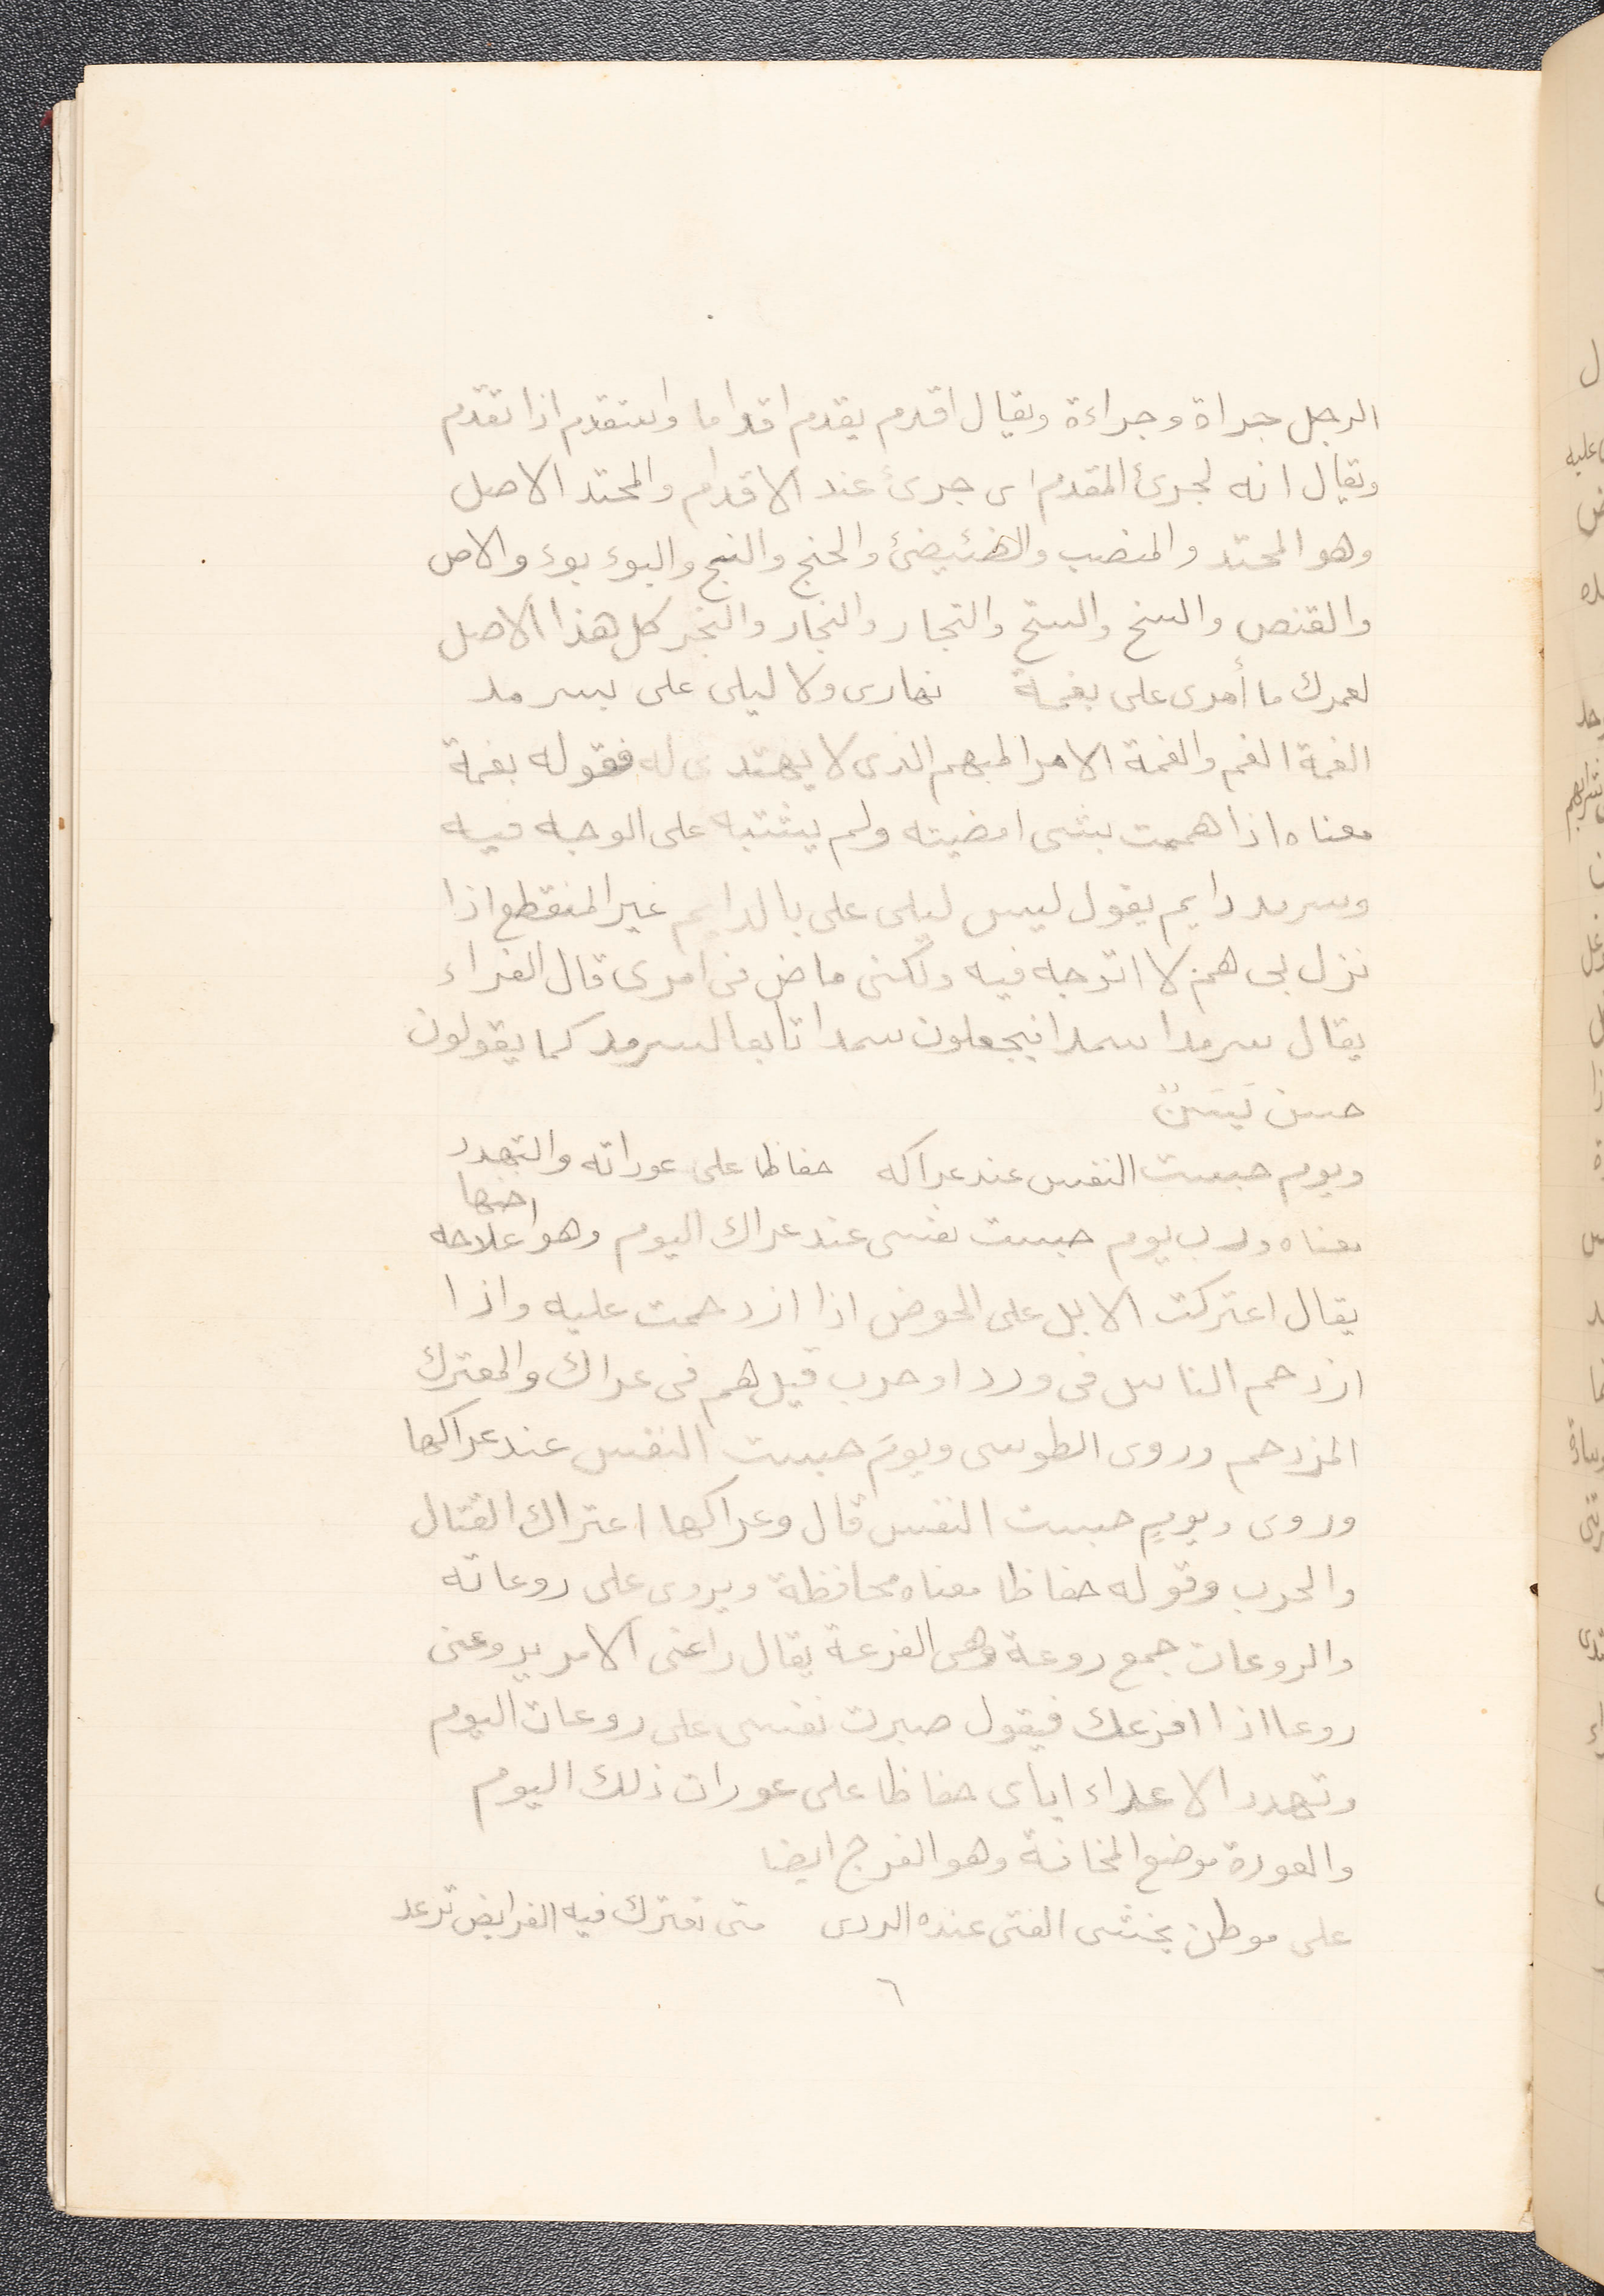 الرجل جراة وجراءة ويقال اقدم يقدم اقداما واستقدم اذا تقدم
ويقال انه لجرئ المقدم اى جرئ عند الاقدام والمحتد الاصل
وهو المحتد والمنصب والضئيضئ والحنج والنبج والبوء بوء والاص
والقنص والسنخ والسنح والنجار والنجار والنجر كل هذا الاصل
لعمرك ما أمرى على بغمة نهارى ولا ليلى على بسرمد
الغمة الغم والغمة الامر المبهم الذى لا يهتدى له فقوله بغمة
معناه اذا هممت بشى امضيته ولم يشتبه على الوجه فيه
وسرمد دايم يقول ليس ليلى على بالدايم غير المنقطع اذا
نزل بى هم لا اتوجه فيه ولكنى ماض فى امرى قال الفراء
يقال سرمدا سمدا فيجعلون سمدا تابعا لسرمد كما يقولون
حسن بَسَنٌ
ويوم حبست النفس عند عراكه حفاظا على عوراته والتهدد
معناه ورب يوم حبست نفسى عند عراك اليوم وهو علاجه
يقال اعتركت الابل على الحوض اذا ازدحمت عليه واذا
ازدحم الناس فى ورد او حرب قيل هم فى عراك والمعترك
المزدحم وروى الطوسى ويومَ حبست النفس عند عراكها
وروى ويومٍ حبست النفس قال وعراكها اعتراك القتال
والحرب وقوله حفاظا معناه محافظة ويروى على روعاته
والروعات جمع روعة وهى الفزعة يقال راعنى الامر يروعنى
روعا اذا افزعك فيقول صبرت نفسى على روعات اليوم
وتهدد الاعداء اياى حفاظا على عورات ذلك اليوم
والعورة موضع المخافة وهو الفرج ايضا
على موطن يخشى الفتى عنده الردى متى تعترك فيه الفرايض ترعد
٦